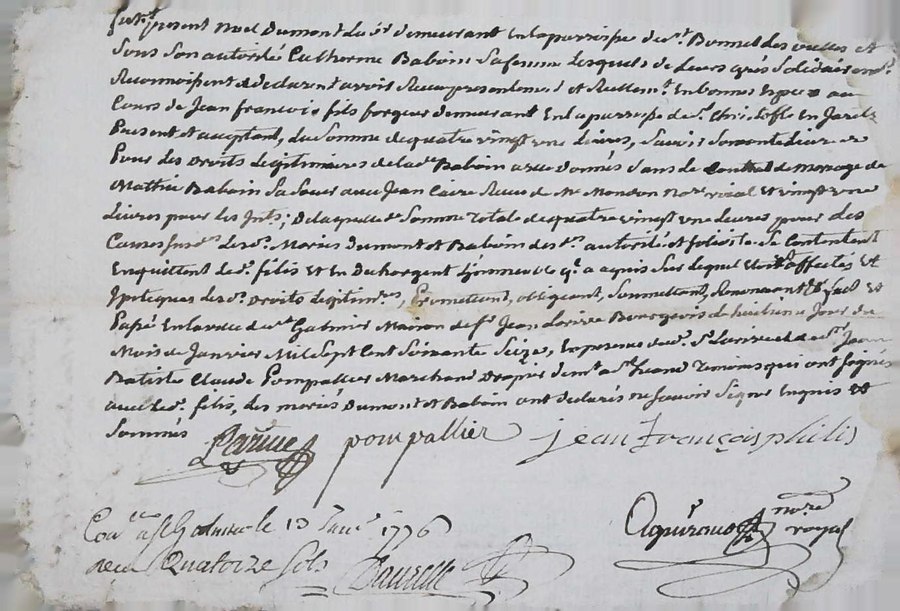 fut present Noel Dumont du d. demeurant En la parroisse de St. Bonnet des oulles et
Sous Son autorité Catherine Baboin Sa femme Lesquels de Leurs grés Solidairem.t
Reconnoissent et declarent avoir Recu presentement et Reellem.t En bonnes Especes au
Cours de Jean francois fils forgeur demeurant En la parroisse de St. Christofle En Jarelz
Present et acceptant, La Somme de quatre vingt une Livres, Savoir Soixante Livres
Pour des Droits Legitimaires de lad. Baboin a eux Donnés dans le Contrat de mariage de
Mathie Baboin Sa Soeur avec Jean Caire Recu de Me. Monron Nore. roial et vingt une
Livres pour les Ints; De laquelle de. Somme Total de quatre vingt une Livres pour des
Causes Susd. Lesd. Mariés Dumont et Baboin autorité et Se Contentent
En quittent Led. filis Et En Dechargent L'immeuble q.l a aquis Sur Lequel Etoit affectés Et
Ipotequés Lesd. Droits Legitim.res, Promettant, obligeant, Soumettant, Renoncant fait Et
Passé En la ville de St. Galmier Maison de Sr. Jean Larive Bourgeois Le huitieme Jour du
Mois de Janvier Mil Sept Cent Soixante Seize, En presence de Sr. Jean
Batiste Claude Pompallier Marchand Drapier Temoins qui ont Signés
avec Led. filis, Les mariés Dumont et Baboin ont declarés ne Savoir Signer Enquis Et
Sommés
pompallier jean françois philis
Con.lé a St Galmier le 13 Janv.r 1776
recu Quatorze Sols
no.re royal